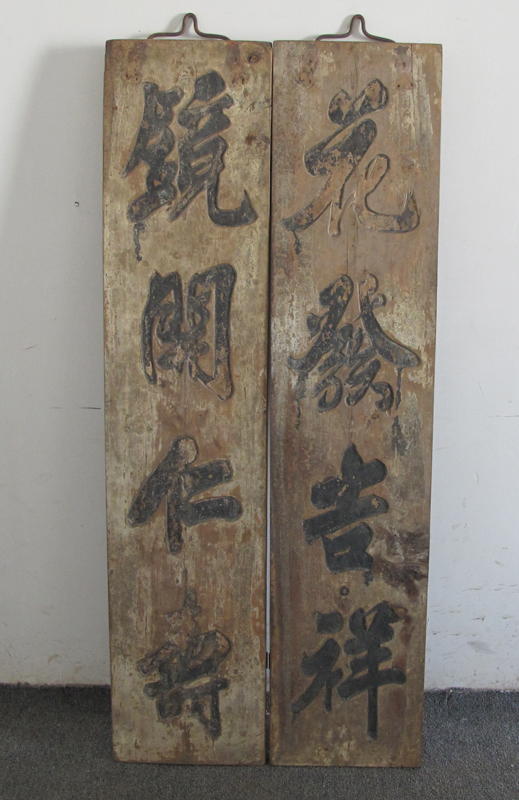 花發吉祥
鏡開仁壽